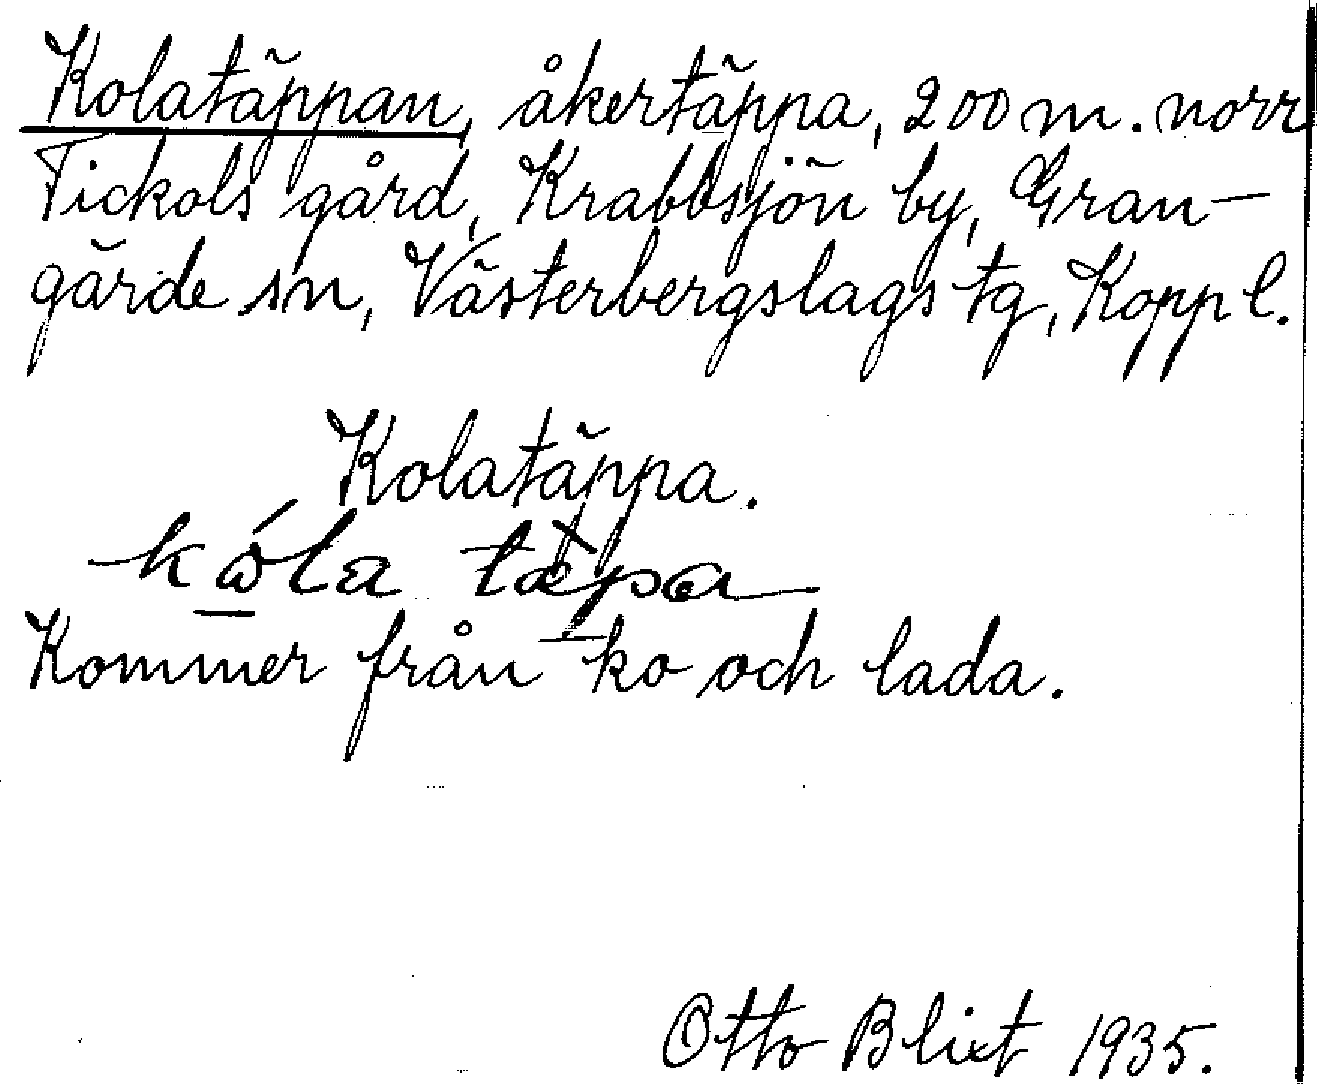 Kolatäppan, åkertäppa, 200 m. norr
Tickols gård, Krabbsjön by, Gran-
gärde sn, Västerbergslags tg, Kopp l.
Kolatäppa.
kola täpa
Kommer från ko och lada.
Otto Blixt 1935.